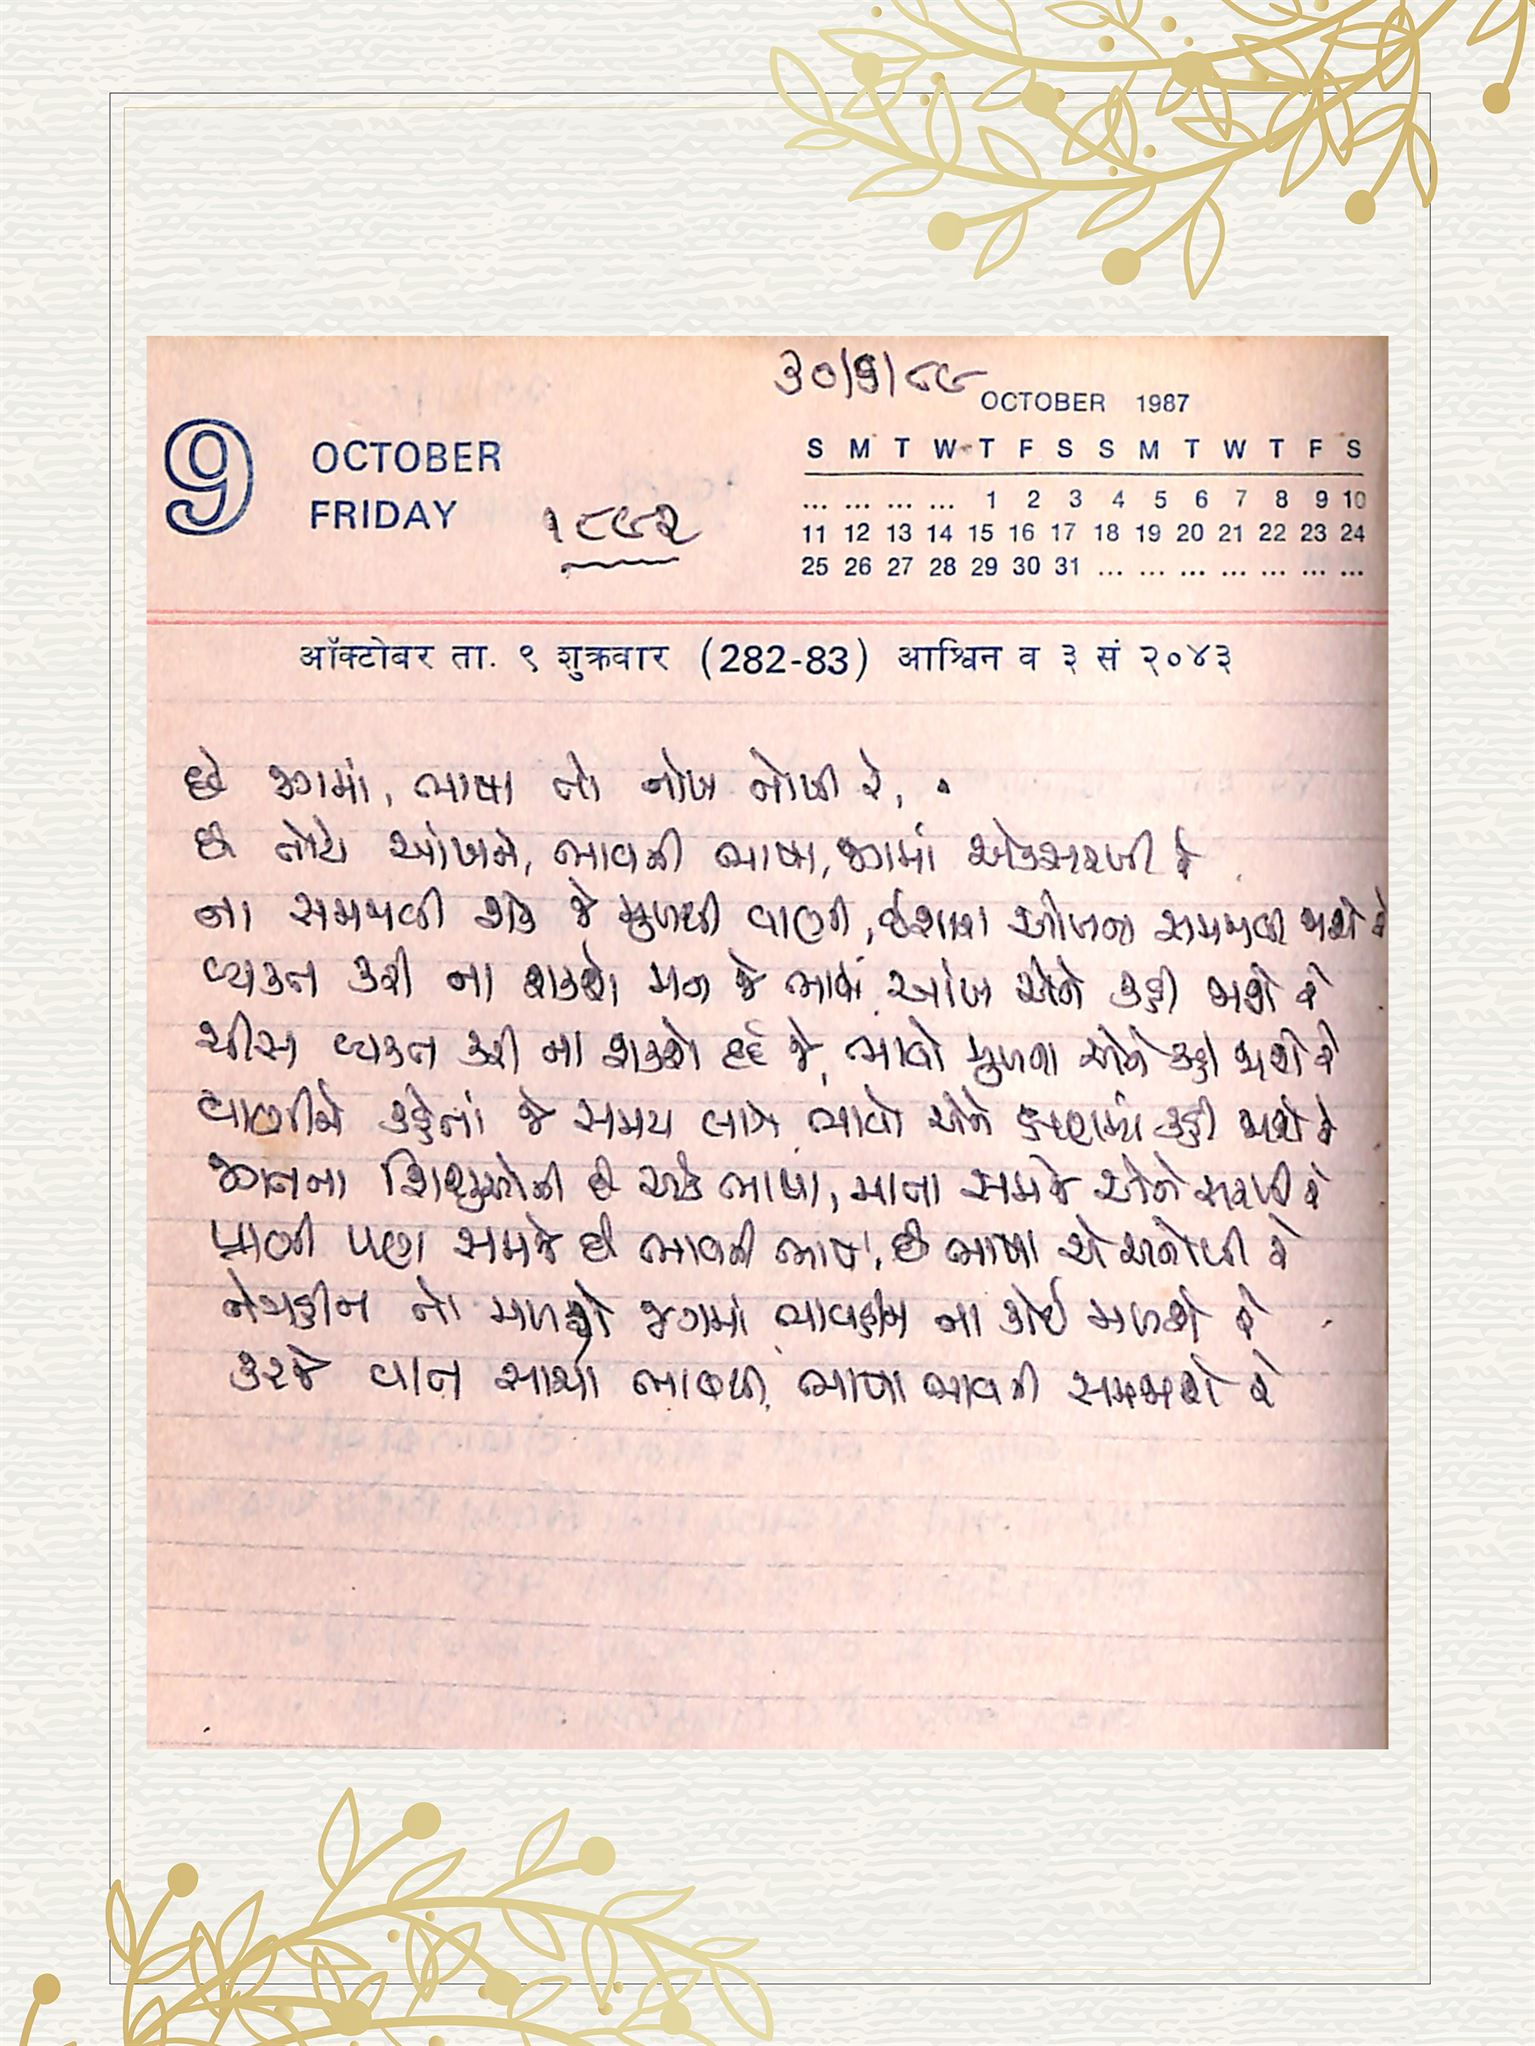 ૩૦/૬/૮૯
OCTOBER 1987
9 OCTOBER
FRIDAY
૧૮૯૨
S M T W T F S S M T W T F S
... ... ... ... 1 2 3 4 5 6 7 8 9 10
11 12 13 14 15 16 17 18 19 20 21 22 23 24
25 26 27 28 29 30 31 ... ... ... ... ... ... ...
ऑक्टोबर ता. ९ शुक्रवार (282-83) आश्विन व ३ सं २०४३
છે જગમાં, ભાષા તો નોખ નોખી રે,
છે તોયે આંખને, ભાવની ભાષા, જગમાં એકસરખી રે
ના સમજાવી શકે જે મુખથી વાણી, ઈશારા આંખના સમજાવી જાશે રે
વ્યક્ત કરી ના શકશે મન જે ભાવો આંખ એને કહી જાશે રે
ચીસ વ્યક્ત કરી ના શકશે દર્દ જે, ભાવો મુખના એને કહી જાશે રે
વાણીને કહેતાં જે સમય લાગે ભાવો એને ક્ષણમાં કહી જાશે રે
જગતના શિશુઓની છે એક ભાષા, માતા સમજે એને સરખી રે
પ્રાણી પણ સમજે છે ભાવની ભાષા, છે ભાષા એ અનોખી રે
નેત્રહીન તો મળશે જગમાં ભાવહીન ના કોઈ મળશે રે
કરજે વાત સાચા ભાવથી, ભાષા ભાવની સમજાશે રે